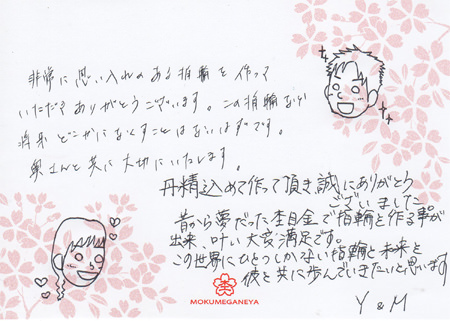 非常に思い入れのある指輪を作って
いただきありがとうございます。この指輪なら
将来どこかになくすことはないはずです。
奥さんと共に大切にいたします。
丹精込めて作って頂き誠にありがとう
ございました
昔から夢だった杢目金で指輪を作る事が
出来、叶い大変満足です。
この世界にひとつしかない指輪と未来を
彼と共に歩んでいきたいと思います
Y & M
MOKUMEGANEYA